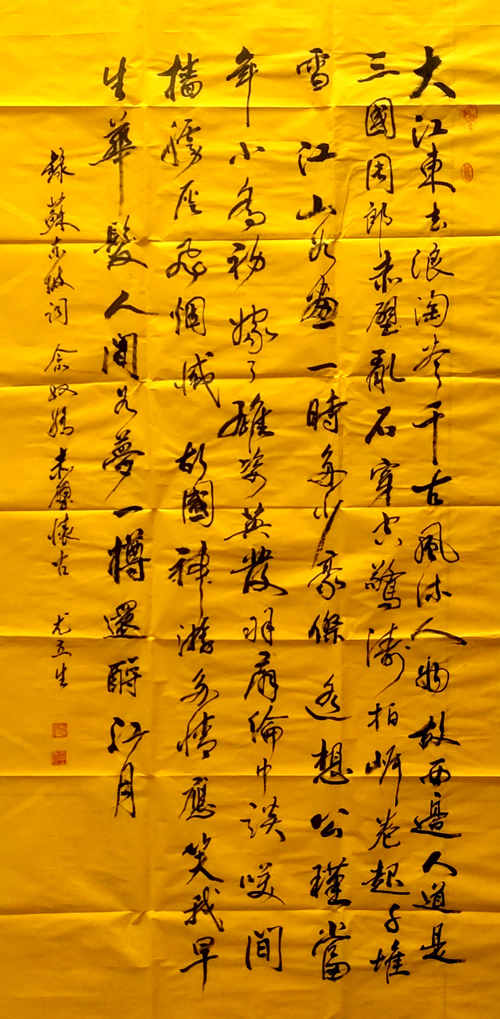 大江東去浪淘盡千古風流人物故西邊人道是
三國周郎赤壁亂石穿空驚濤拍岸卷起千堆
雪江山如畫一時多少豪傑遙想公瑾當
年小喬初嫁了雄姿英發羽扇綸巾談笑間
檣櫓灰飛烟滅故國神游多情應笑我早
生華髮人間如夢一樽還酹江月
錄蘇東坡詞 念奴嬌 赤壁懷古 尤立生